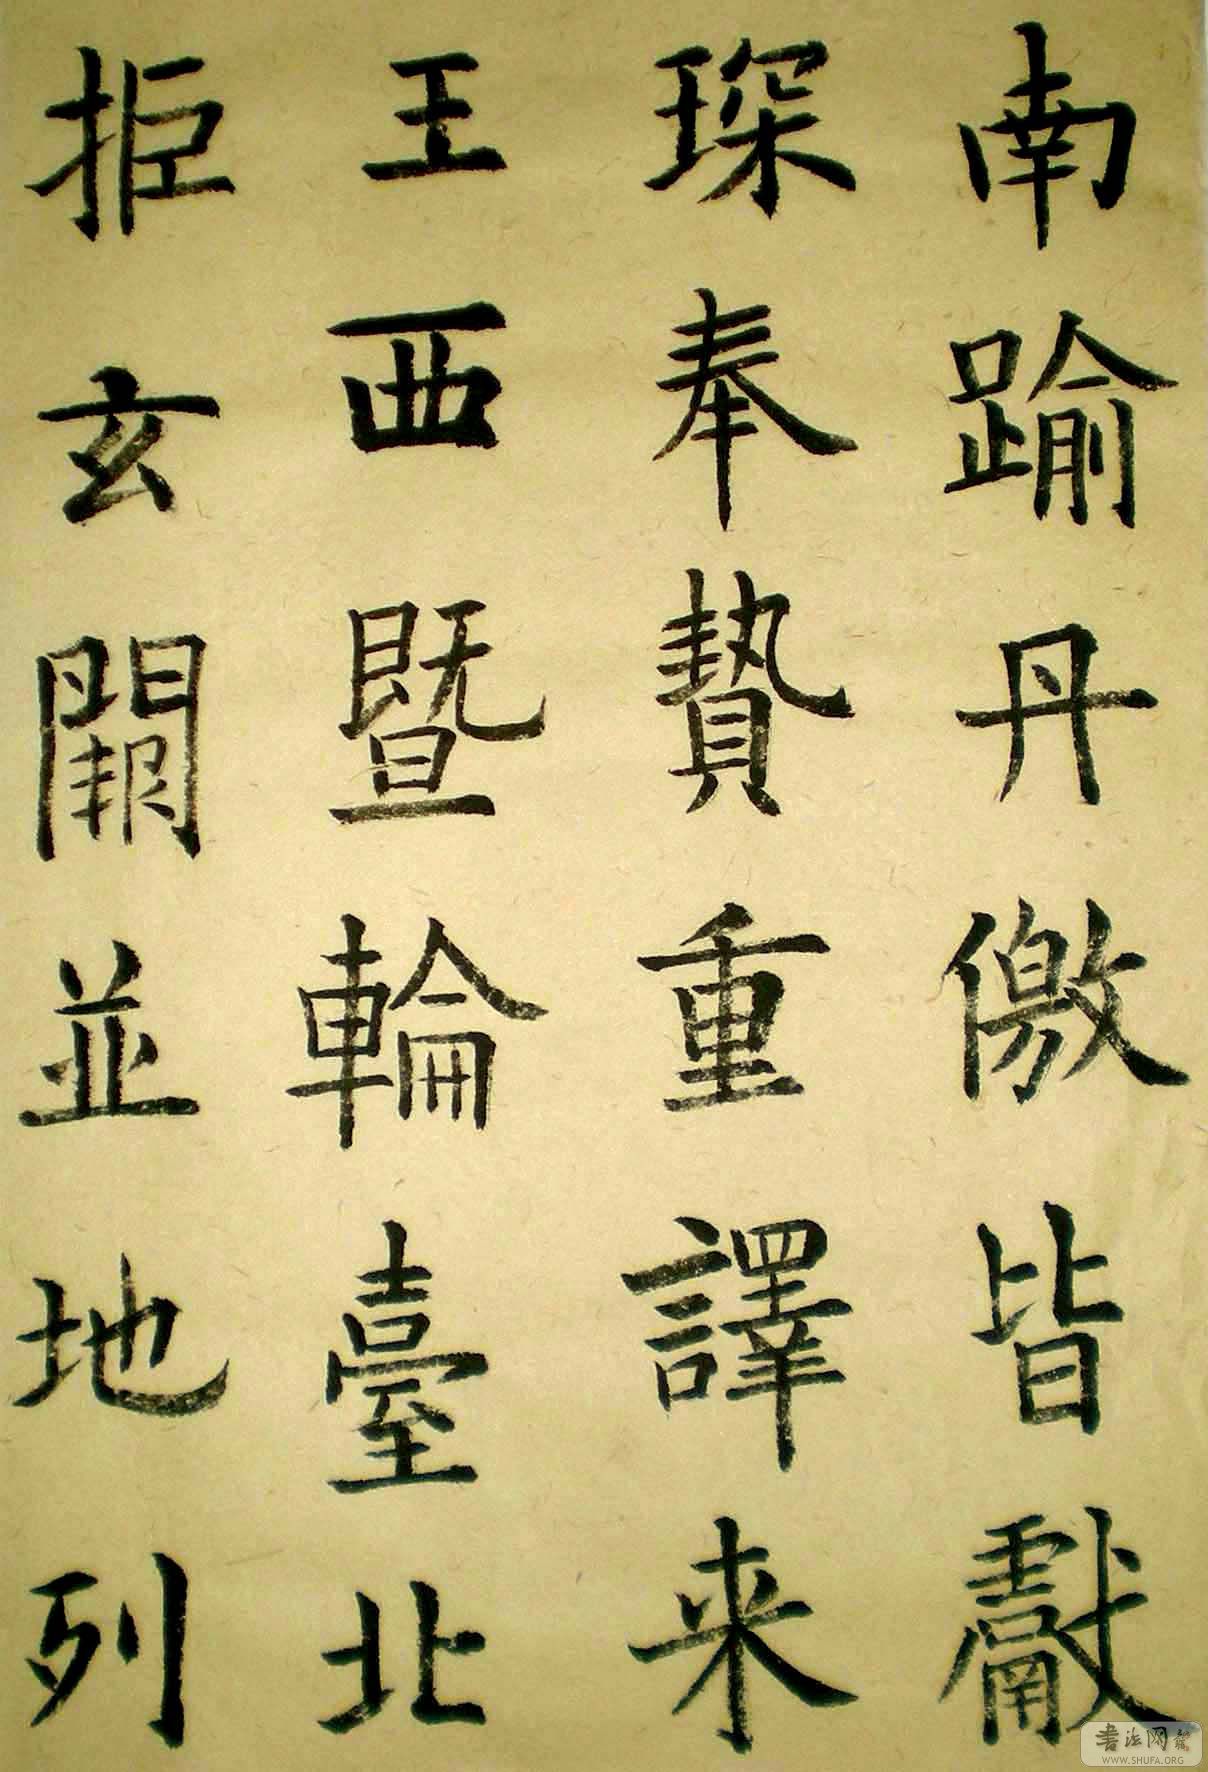 南踰丹儌皆獻
琛奉贄重譯来
王西暨輪臺北
拒玄闕並地列
书法网
WWW.SHUFA.ORG